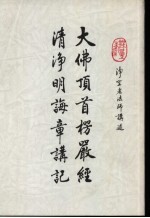 大佛頂首楞嚴經
清淨明誨章講記
淨空老法師講述